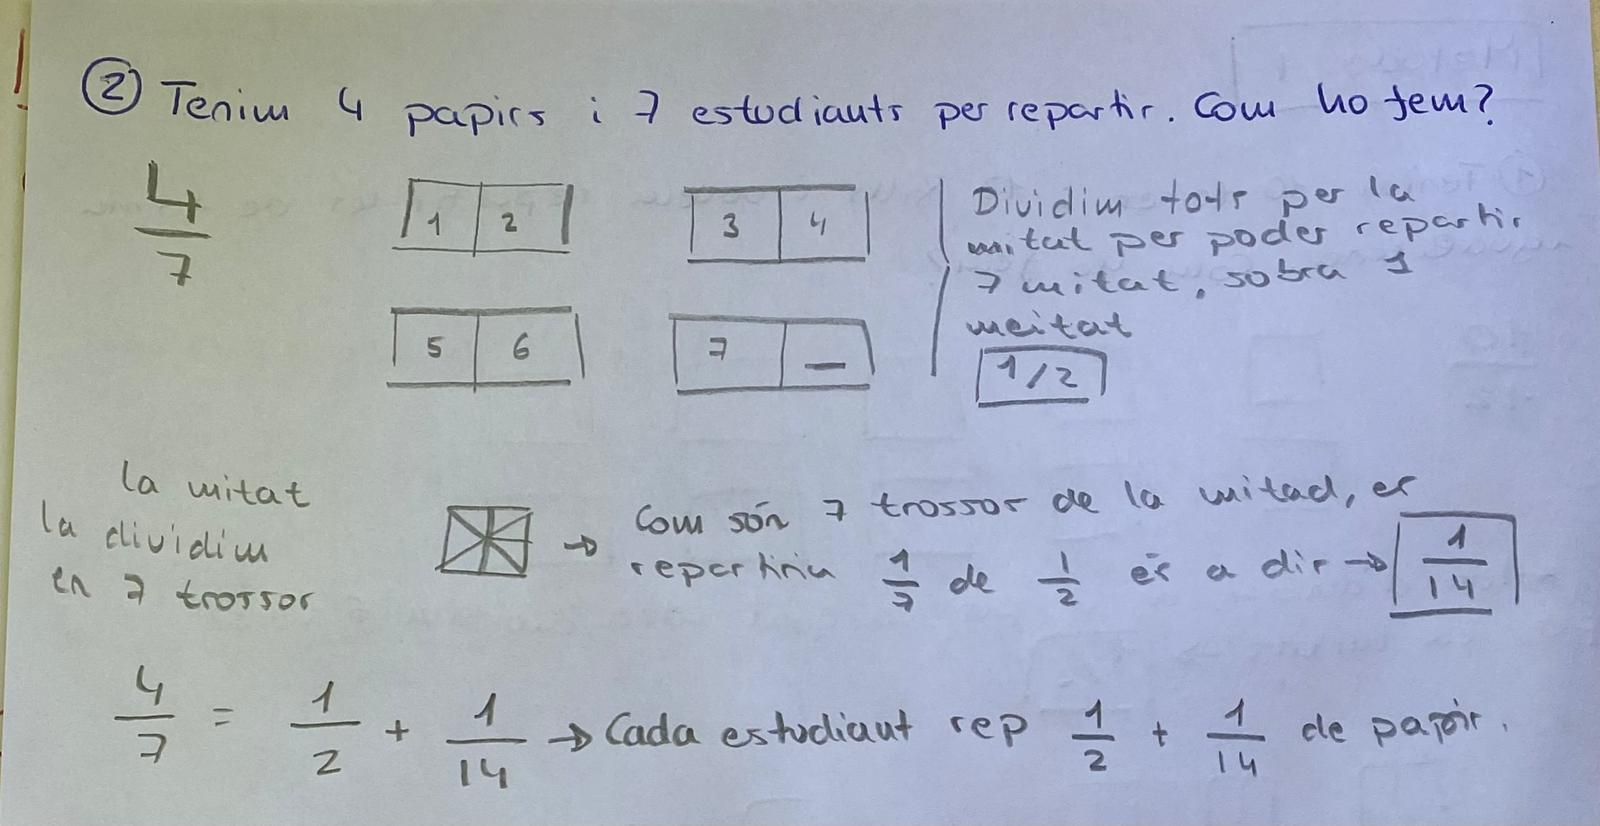 ② Tenim 4 papirs i 7 estudiants per repartir. Com ho fem?
4/7
1 2 3 4
5 6 7 _
Dividim tots per la
mitat per poder repartir
7 mitat, sobra 1
meitat
1/2
la mitat
la dividim
en 7 trossos
→ Com són 7 trossos de la mitad, es
repartiria 1/7 de 1/2 és a dir → 1/14
4/7 = 1/2 + 1/14 → Cada estudiant rep 1/2 + 1/14 de papir.